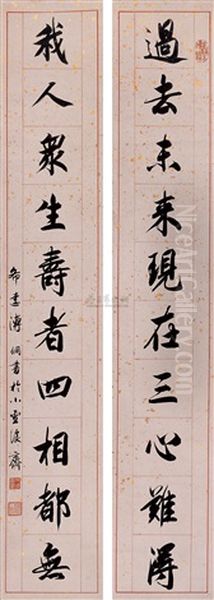 過去未来現在三心難得
我人衆生壽者四相都無
溥侗書於小齋
NiceArtGallery.com